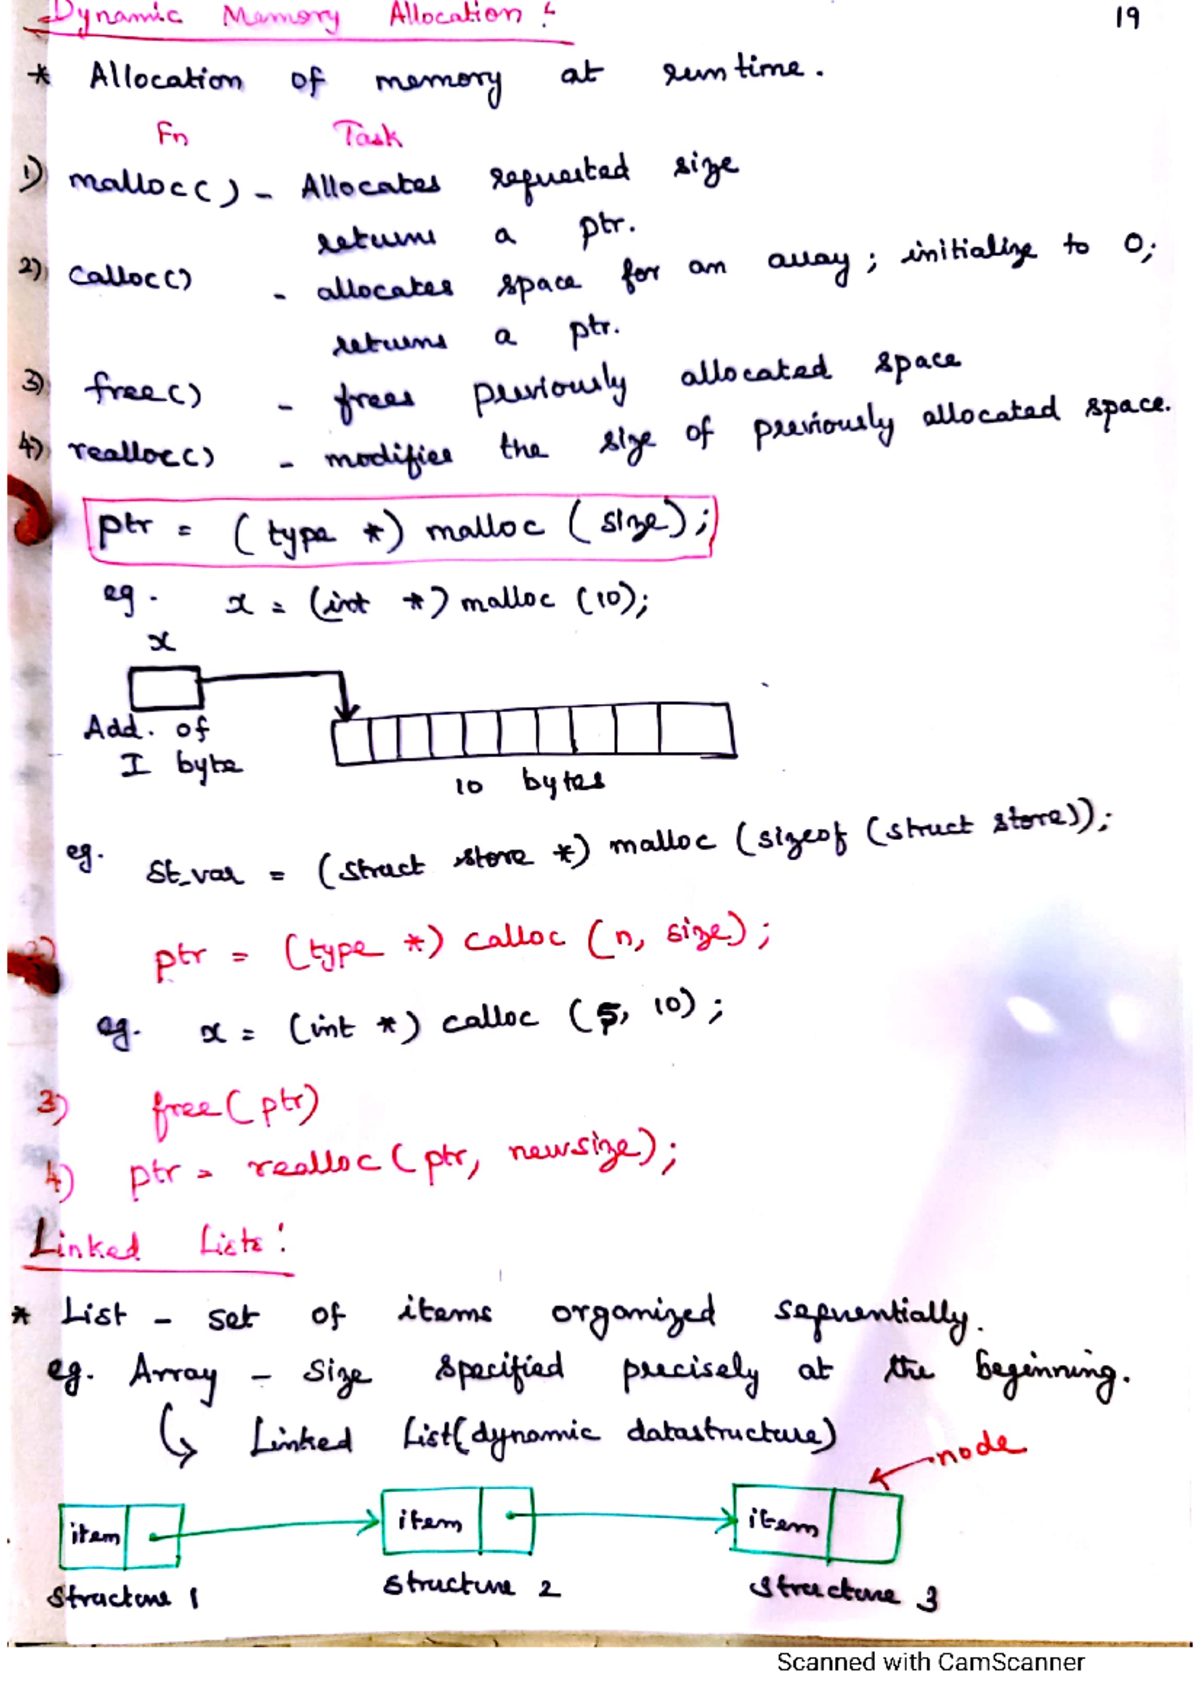 Dynamic Memory Allocation :
19
* Allocation of memory at runtime.
Fn Task
1) malloc() - Allocates requested size
returns a ptr.
2) calloc() - allocates space for an array; initialize to 0;
returns a ptr.
3) free() - frees previously allocated space
4) realloc() - modifies the size of previously allocated space.
ptr = (type *) malloc (size);
eg. x = (int *) malloc (10);
x
Add. of
I byte
10 bytes
eg. St_var = (struct store *) malloc (sizeof (struct store));
2) ptr = (type *) calloc (n, size);
eg. x = (int *) calloc (5, 10);
3) free(ptr)
4) ptr = realloc (ptr, newsize);
Linked Lists:
* List - set of items organized sequentially.
eg. Array - Size specified precisely at the beginning.
↳ Linked List(dynamic datastructure)
node
item item item
structure 1 structure 2 structure 3
Scanned with CamScanner